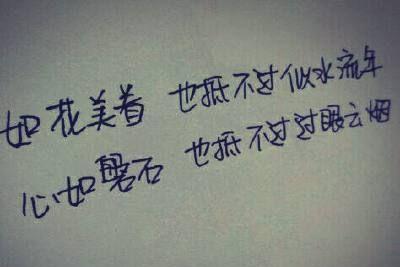 如花美着 也抵不过似水流年
心如磐石 也抵不过过眼云烟